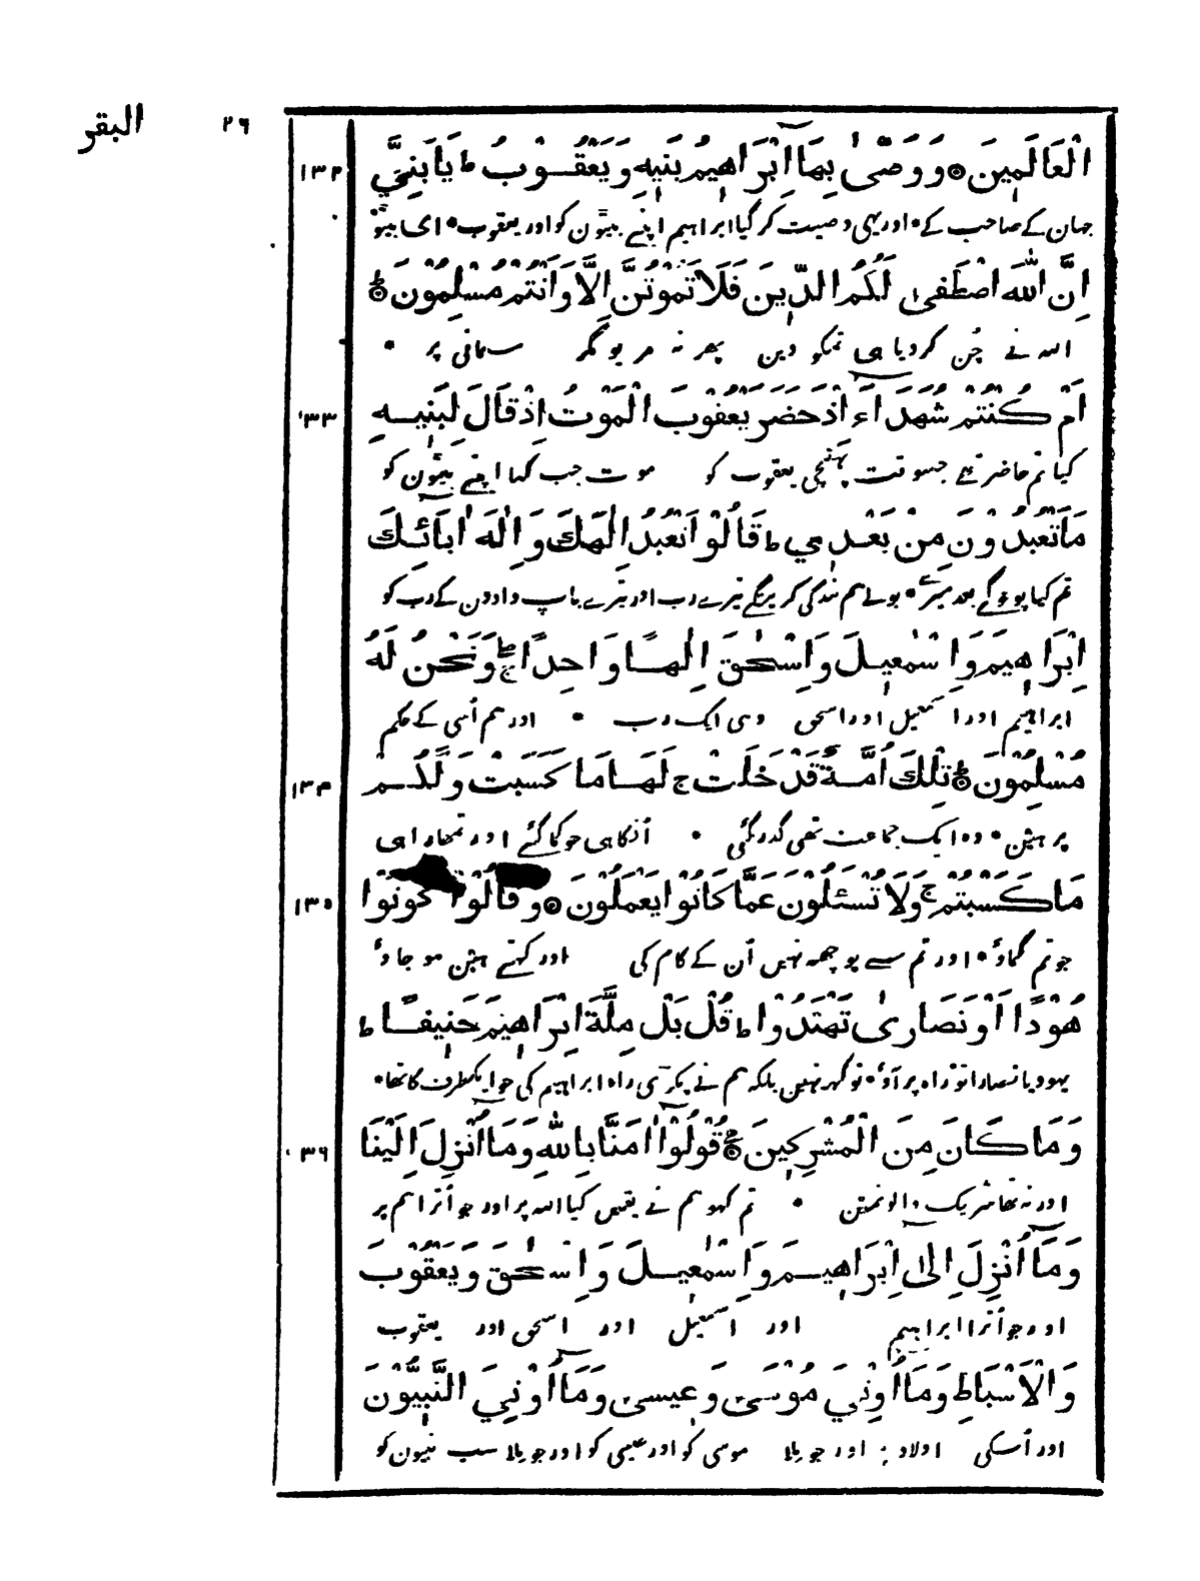 البقر ٢٦
الْعَالَمِينَ ۝ وَوَصَّىٰ بِهَآ اِبْرَاهِيمُ بَنِيهِ وَيَعْقُوبُ ط يَابَنِيَّ ١٣٢
جہان کے صاحب کے • اور یہی وصیت کر گیا ابراہیم اپنے بیٹون کو اور یعقوب • ای بیٹو
اِنَّ اللّٰهَ اصْطَفىٰ لَكُمُ الدِّينَ فَلَا تَمُوتُنَّ اِلَّا وَاَنْتُمْ مُسْلِمُوْنَ ۝ط
اللہ نے چُن کر دیا ہی تمکو دین پھر نہ مریو مگر مسلمانی پر •
اَمْ كُنْتُمْ شُهَدَآءَ اِذْ حَضَرَ يَعْقُوْبَ الْمَوْتُ اِذْ قَالَ لِبَنِيهِ ١٣٣
کیا تم حاضر تھے جسوقت پہنچی یعقوب کو موت جب کہا اپنے بیٹون کو
مَا تَعْبُدُوْنَ مِنْ بَعْدِي ط قَالُوْا نَعْبُدُ اِلٰهَكَ وَاِلٰهَ اٰبَائِكَ
تم کیا پوجو گے بعد میرے • بولے ہم بندگی کرینگے تیرے رب اور تیرے باپ دادون کے رب کو
اِبْرَاهِيمَ وَاِسْمٰعِيلَ وَاِسْحٰقَ اِلٰهًا وَاحِدًا ج وَنَحْنُ لَهُ
ابراہیم اور اسمعیل اور اسحق وہی ایک رب • اور ہم اُسی کے حکم
مُسْلِمُوْنَ ۝ تِلْكَ اُمَّةٌ قَدْ خَلَتْ ج لَهَا مَا كَسَبَتْ وَلَكُمْ ١٣٤
پر ہین • وہ ایک جماعت تھی گذر گئی • اُنکا ہی جو کما گئے اور تمھارا ہی
مَا كَسَبْتُمْ ج وَلَا تُسْئَلُوْنَ عَمَّا كَانُوْا يَعْمَلُوْنَ ۝ وَقَالُوْا كُونُوْا ١٣٥
جو تم کماؤ • اور تم سے پوچھہ نہین اُن کے کام کی اور کہتے ہین ہو جاؤ
هُوْدًا اَوْ نَصَارىٰ تَهْتَدُوْا ط قُلْ بَلْ مِلَّةَ اِبْرَاهِيْمَ حَنِيفًا ط
یہود یا نصارا تو راہ پر آؤ • تو کہہ نہین بلکہ ہم نے پکڑی راہ ابراہیم کی جو ایکطرف کا تھا •
وَمَا كَانَ مِنَ الْمُشْرِكِينَ ۝ قُوْلُوْا اٰمَنَّا بِاللّٰهِ وَمَا اُنْزِلَ اِلَيْنَا ١٣٦
اور نہ تھا شریک والونمین • تم کہو ہم نے یقین کیا اللہ پر اور جو اُترا ہم پر
وَمَآ اُنْزِلَ اِلىٰ اِبْرَاهِيمَ وَاِسْمٰعِيلَ وَاِسْحٰقَ وَيَعْقُوْبَ
اور جو اُترا ابراہیم اور اسمعیل اور اسحق اور یعقوب
وَالْاَسْبَاطِ وَمَآ اُوتِيَ مُوْسىٰ وَعِيسىٰ وَمَآ اُوْتِيَ النَّبِيُّوْنَ
اور اُسکی اولاد پر اور جو ملا موسی کو اور عیسی کو اور جو ملا سب نبیون کو